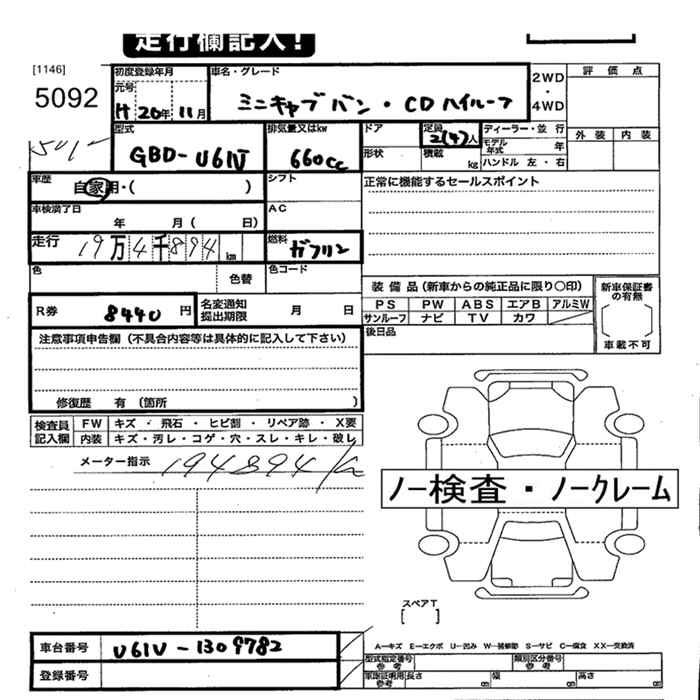 走行欄記入!
[1146]
5092
初度登録年月
元号
H 20年 11月
車名・グレード
ミニキャブバン・CDハイルーフ
2WD
・
4WD
評 価 点
外 装 内 装
型式
GBD-U61V
排気量又はkw
660cc
ドア
形状
定員
2(4)人
積載
kg
ディーラー・並 行
モデル年式 年
ハンドル 左・右
501-
車歴
自家用・( )
シフト
正常に機能するセールスポイント
車検満了日
年 月( 日)
AC
走行
19万4千894km
燃料
ガソリン
色
色替
色コード
装 備 品(新車からの純正品に限り〇印)
PS PW ABS エアB アルミW
サンルーフ ナビ TV カワ
後日品
新車保証書の有無
車載不可
R券 8440 円
名変通知
提出期限
月 日
注意事項申告欄(不具合内容等は具体的に記入して下さい)
修復歴 有(箇所 )
検査員
記入欄
FW キズ・飛石・ヒビ割・リペア跡・X要
内装 キズ・汚レ・コゲ・穴・スレ・キレ・破レ
メーター指示 194894
ノー検査・ノークレーム
スペアT
[ ]
車台番号 U61V-1309782
登録番号
A-キズ E-エクボ U-凹み W-補修跡 S-サビ C-腐食 XX-交換済
型式指定番号
参考
類別区分番号
参考
車庫証明用
参考
長さ cm 幅 cm 高さ cm